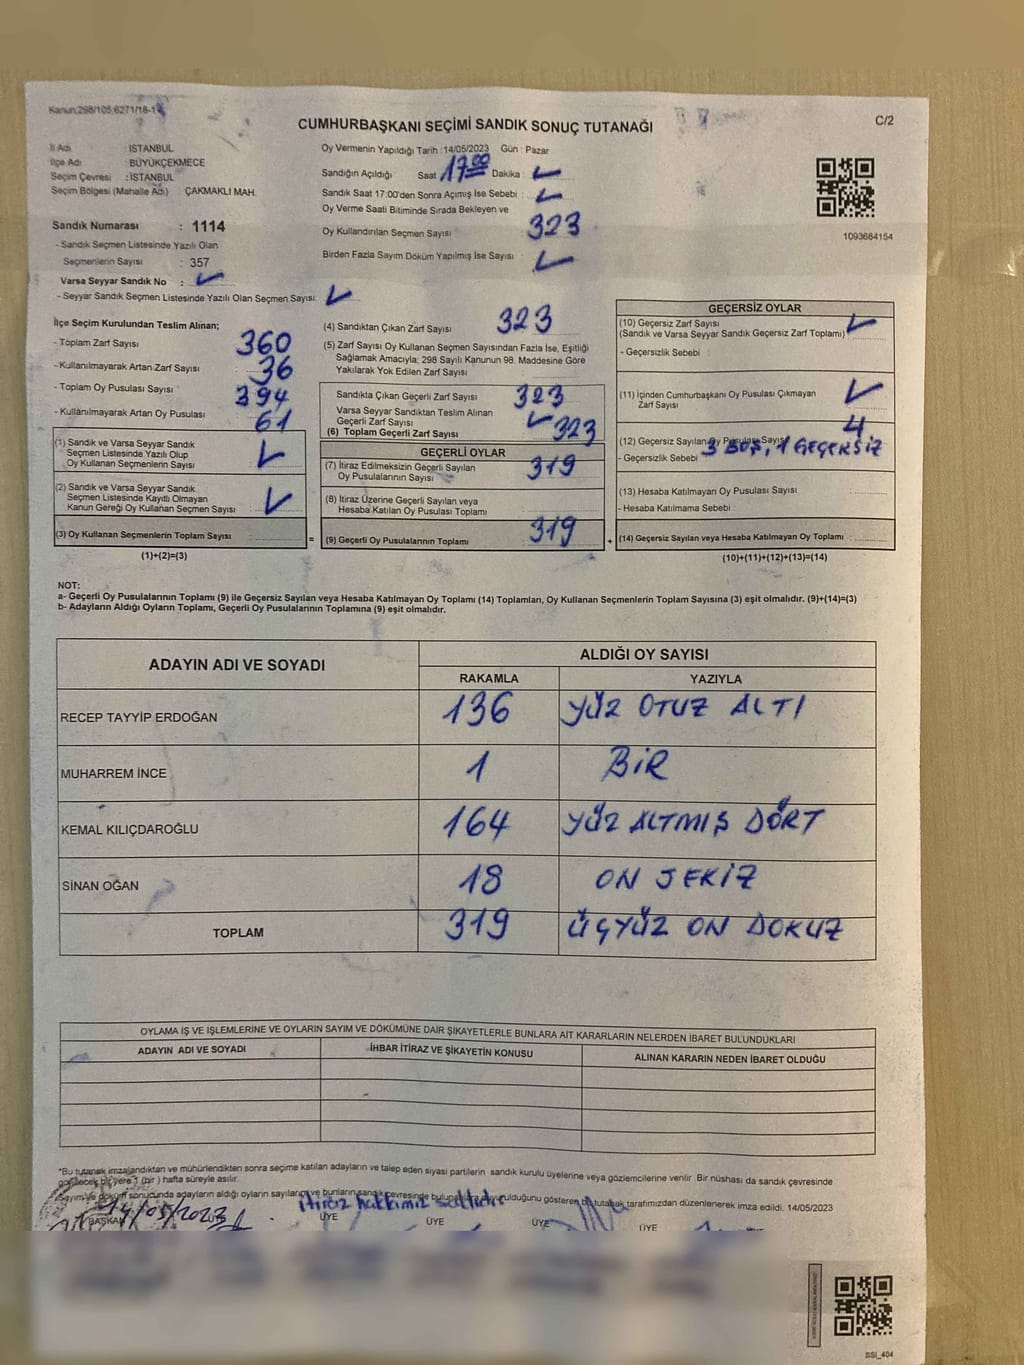 Kanun:298/105,6271/18-1
C/2
CUMHURBAŞKANI SEÇİMİ SANDIK SONUÇ TUTANAĞI
İl Adı : İSTANBUL
İlçe Adı : BÜYÜKÇEKMECE
Seçim Çevresi : İSTANBUL
Seçim Bölgesi (Mahalle Adı) ÇAKMAKLI MAH.
Sandık Numarası : 1114
- Sandık Seçmen Listesinde Yazılı Olan
Seçmenlerin Sayısı : 357
Varsa Seyyar Sandık No : ✓
- Seyyar Sandık Seçmen Listesinde Yazılı Olan Seçmen Sayısı: ✓
Oy Vermenin Yapıldığı Tarih : 14/05/2023 Gün : Pazar
Sandığın Açıldığı Saat 17:00 Dakika : ✓
Sandık Saat 17:00'den Sonra Açımış İse Sebebi : ✓
Oy Verme Saati Bitiminde Sırada Bekleyen ve
Oy Kullandırılan Seçmen Sayısı : 323
Birden Fazla Sayım Döküm Yapılmış İse Sayısı : ✓
1093684154
İlçe Seçim Kurulundan Teslim Alınan;
- Toplam Zarf Sayısı : 360
- Kullanılmayarak Artan Zarf Sayısı : 36
- Toplam Oy Pusulası Sayısı : 394
- Kullanılmayarak Artan Oy Pusulası : 61
(1) Sandık ve Varsa Seyyar Sandık
Seçmen Listesinde Yazılı Olup
Oy Kullanan Seçmenlerin Sayısı : ✓
(2) Sandık ve Varsa Seyyar Sandık
Seçmen Listesinde Kayıtlı Olmayan
Kanun Gereği Oy Kullanan Seçmen Sayısı : ✓
(3) Oy Kullanan Seçmenlerin Toplam Sayısı : =
(1)+(2)=(3)
(4) Sandıktan Çıkan Zarf Sayısı : 323
(5) Zarf Sayısı Oy Kullanan Seçmen Sayısından Fazla İse, Eşitliği
Sağlamak Amacıyla; 298 Sayılı Kanunun 98. Maddesine Göre
Yakılarak Yok Edilen Zarf Sayısı :
Sandıkta Çıkan Geçerli Zarf Sayısı : 323
Varsa Seyyar Sandıktan Teslim Alınan
Geçerli Zarf Sayısı : ✓
(6) Toplam Geçerli Zarf Sayısı : 323
GEÇERLİ OYLAR
(7) İtiraz Edilmeksizin Geçerli Sayılan
Oy Pusulalarının Sayısı : 319
(8) İtiraz Üzerine Geçerli Sayılan veya
Hesaba Katılan Oy Pusulası Toplamı :
(9) Geçerli Oy Pusulalarının Toplamı : 319 +
GEÇERSİZ OYLAR
(10) Geçersiz Zarf Sayısı : ✓
(Sandık ve Varsa Seyyar Sandık Geçersiz Zarf Toplamı)
- Geçersizlik Sebebi :
(11) İçinden Cumhurbaşkanı Oy Pusulası Çıkmayan
Zarf Sayısı : ✓
(12) Geçersiz Sayılan Oy Pusulası Sayısı : 4
- Geçersizlik Sebebi : 3 BOŞ, 1 GEÇERSİZ
(13) Hesaba Katılmayan Oy Pusulası Sayısı :
- Hesaba Katılmama Sebebi :
(14) Geçersiz Sayılan veya Hesaba Katılmayan Oy Toplamı :
(10)+(11)+(12)+(13)=(14)
NOT:
a- Geçerli Oy Pusulalarının Toplamı (9) ile Geçersiz Sayılan veya Hesaba Katılmayan Oy Toplamı (14) Toplamları, Oy Kullanan Seçmenlerin Toplam Sayısına (3) eşit olmalıdır. (9)+(14)=(3)
b- Adayların Aldığı Oyların Toplamı, Geçerli Oy Pusulalarının Toplamına (9) eşit olmalıdır.
ADAYIN ADI VE SOYADI ALDIĞI OY SAYISI
RAKAMLA YAZIYLA
RECEP TAYYİP ERDOĞAN 136 YÜZ OTUZ ALTI
MUHARREM İNCE 1 BİR
KEMAL KILIÇDAROĞLU 164 YÜZ ALTMIŞ DÖRT
SİNAN OĞAN 18 ON SEKİZ
TOPLAM 319 ÜÇYÜZ ON DOKUZ
OYLAMA İŞ VE İŞLEMLERİNE VE OYLARIN SAYIM VE DÖKÜMÜNE DAİR ŞİKAYETLERLE BUNLARA AİT KARARLARIN NELERDEN İBARET BULUNDUKLARI
ADAYIN ADI VE SOYADI İHBAR İTİRAZ VE ŞİKAYETİN KONUSU ALINAN KARARIN NEDEN İBARET OLDUĞU
*Bu tutanak imzalandıktan ve mühürlendikten sonra seçime katılan adayların ve talep eden siyasi partilerin sandık kurulu üyelerine veya gözlemcilerine verilir. Bir nüshası da sandık çevresinde
görülecek bir yere 1 (bir) hafta süreyle asılır.
Sayım ve döküm sonucunda adayların aldığı oyların sayılarını ve bunların sandık çevresinde bulunduğunu gösteren bu tutanak tarafımızdan düzenlenerek imza edildi. 14/05/2023
14/05/2023 itiraz hakkımız saklıdır
BAŞKAN ÜYE ÜYE ÜYE ÜYE
SSİ_404